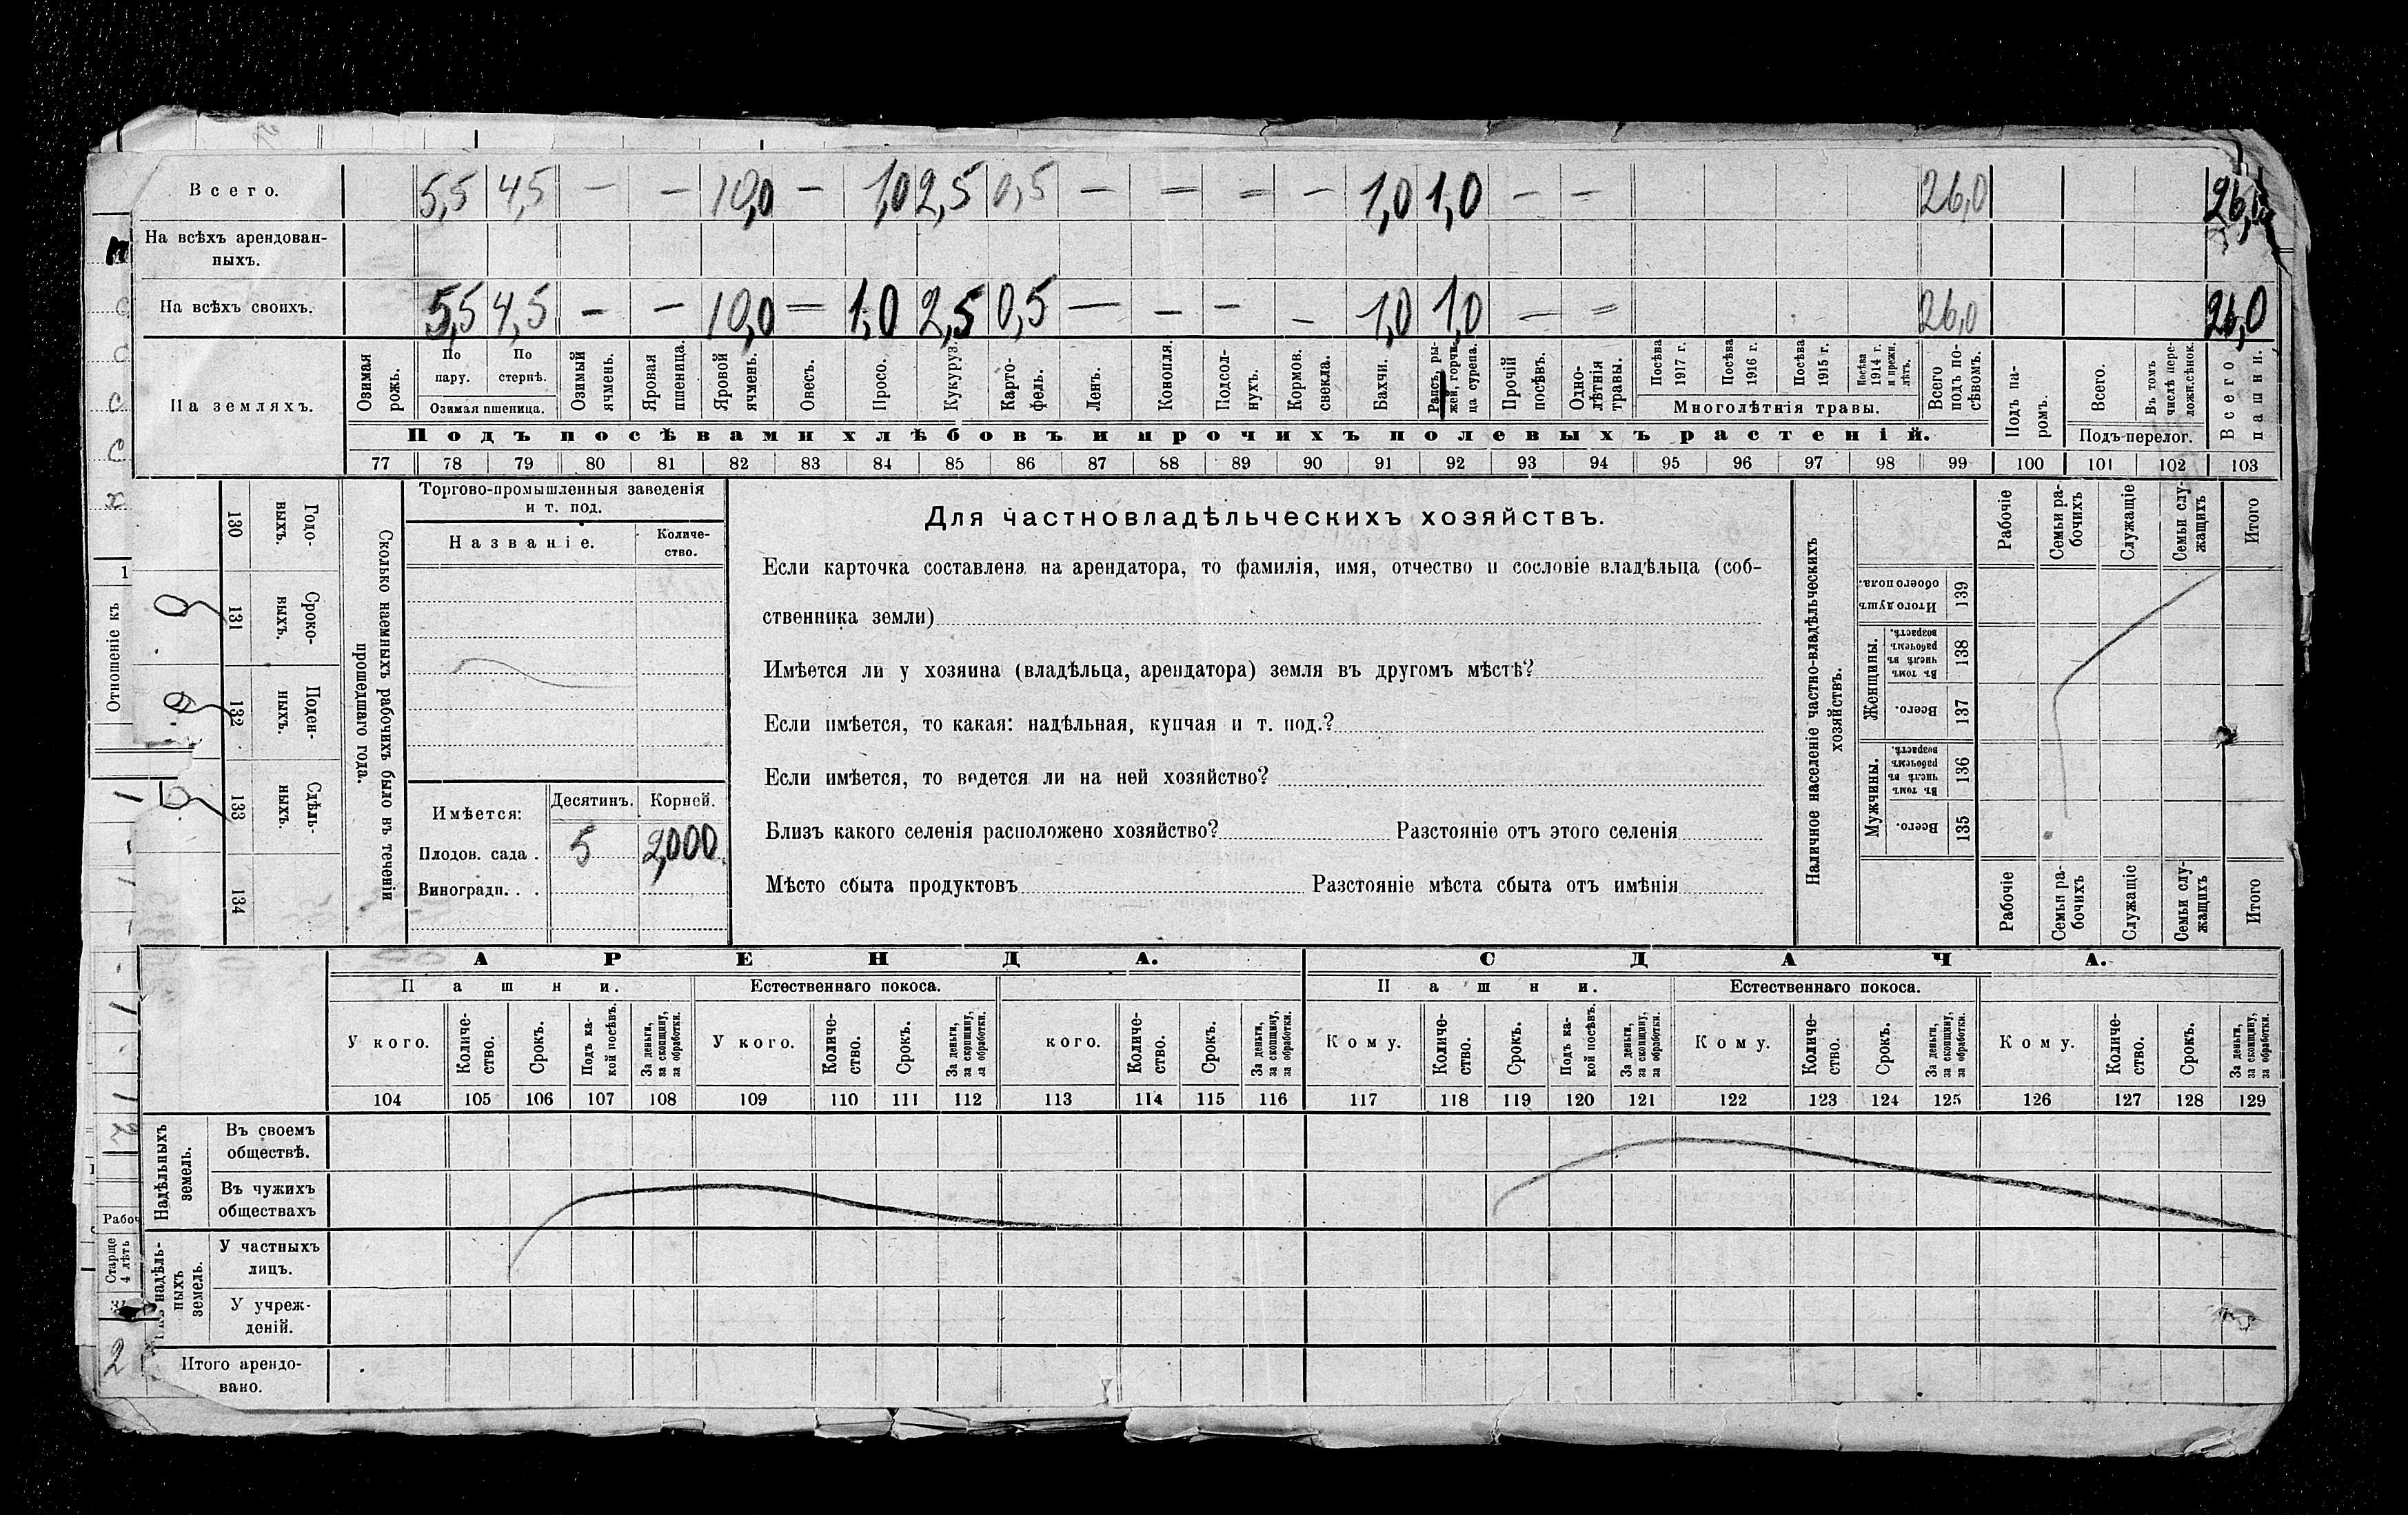 Всего. 5,5 4,5 — — 10,0 — 1,0 2,5 0,5 — — — — 1,0 1,0 — — 26,0 26,0
На всѣхъ арендован-
ныхъ.
На всѣхъ своихъ. 5,5 4,5 — — 10,0 — 1,0 2,5 0,5 — — — — 1,0 1,0 — — 26,0 26,0
На земляхъ.
Озимая рожь.
По пару.
По стернѣ.
Озимая пшеница.
Озимый ячмень.
Яровая пшеница.
Яровой ячмень.
Овесъ.
Просо.
Кукуруз.
Карто-
фель.
Ленъ.
Конопля.
Подсол-
нухъ.
Кормов. свекла.
Бахчи.
Рапсъ, ры-
жей, горчи-
ца сурепа.
Прочій посѣвъ.
Одно-
лѣтнія травы.
Посѣва 1917 г.
Посѣва 1916 г.
Посѣва 1915 г.
Посѣва 1914 г. и прежн. лѣтъ.
Многолѣтнія травы.
Всего подъ по-
сѣвомъ.
Подъ па-
ромъ.
Всего.
Въ томъ числѣ пере-
ложн.сѣнок.
Подъ перелог.
Всего пашни.
Подъ посѣвами хлѣбовъ и прочихъ полевыхъ растеній.
77 78 79 80 81 82 83 84 85 86 87 88 89 90 91 92 93 94 95 96 97 98 99 100 101 102 103
Отношеніе къ
130 Годо-
выхъ.
131 Сроко-
выхъ.
132 Поден-
ныхъ.
133 Сдѣль-
ныхъ.
134
Сколько наемныхъ рабочихъ было въ теченіи
прошедшаго года.
Торгово-промышленныя заведенія
и т. под.
Названіе.
Количе-
ство.
Имѣется:
Десятинъ. Корней.
Плодов. сада . 5 2,000.
Виноградн. . .
Для частновладѣльческихъ хозяйствъ.
Если карточка составлена на арендатора, то фамилія, имя, отчество и сословіе владѣльца (соб-
ственника земли)
Имѣется ли у хозяина (владѣльца, арендатора) земля въ другомъ мѣстѣ?
Если имѣется, то какая: надѣльная, купчая и т. под.?
Если имѣется, то ведется ли на ней хозяйство?
Близъ какого селенія расположено хозяйство? Разстояніе отъ этого селенія
Мѣсто сбыта продуктовъ Разстояніе мѣста сбыта отъ имѣнія
Наличное населеніе частно-владѣльческихъ
хозяйствъ.
Рабочіе
Семьи ра-
бочихъ
Служащіе
Семьи слу-
жащихъ
Итого
Итого душъ обоего пола. 139
Женщины.
Въ томъ числѣ въ рабочемъ возрастѣ. 138
Всего. 137
Мужчины.
Въ томъ числѣ въ рабочемъ возрастѣ. 136
Всего. 135
Рабочіе
Семьи ра-
бочихъ
Служащіе
Семьи слу-
жащихъ
Итого
АРЕНДА. СДАЧА.
Пашни. Естественнаго покоса. Пашни. Естественнаго покоса.
У кого.
Количе-
ство.
Срокъ.
Подъ ка-
кой посѣвъ.
За деньги,
за скопщину,
за обработки.
У кого.
Количе-
ство.
Срокъ.
За деньги,
за скопщину,
за обработки.
кого.
Количе-
ство.
Срокъ.
За деньги,
за скопщину,
за обработки.
Кому.
Количе-
ство.
Срокъ.
Подъ ка-
кой посѣвъ.
За деньги,
за скопщину,
за обработки.
Кому.
Количе-
ство.
Срокъ.
За деньги,
за скопщину,
за обработки.
Кому.
Количе-
ство.
Срокъ.
За деньги,
за скопщину,
за обработки.
104 105 106 107 108 109 110 111 112 113 114 115 116 117 118 119 120 121 122 123 124 125 126 127 128 129
Надѣльныхъ
земель.
Въ своемъ
обществѣ.
Въ чужихъ
обществахъ
надѣль-
ныхъ
земель.
У частныхъ
лицъ.
У учреж-
деній.
Итого арендо-
вано.
Рабоч
Старше
4 лѣтъ
2